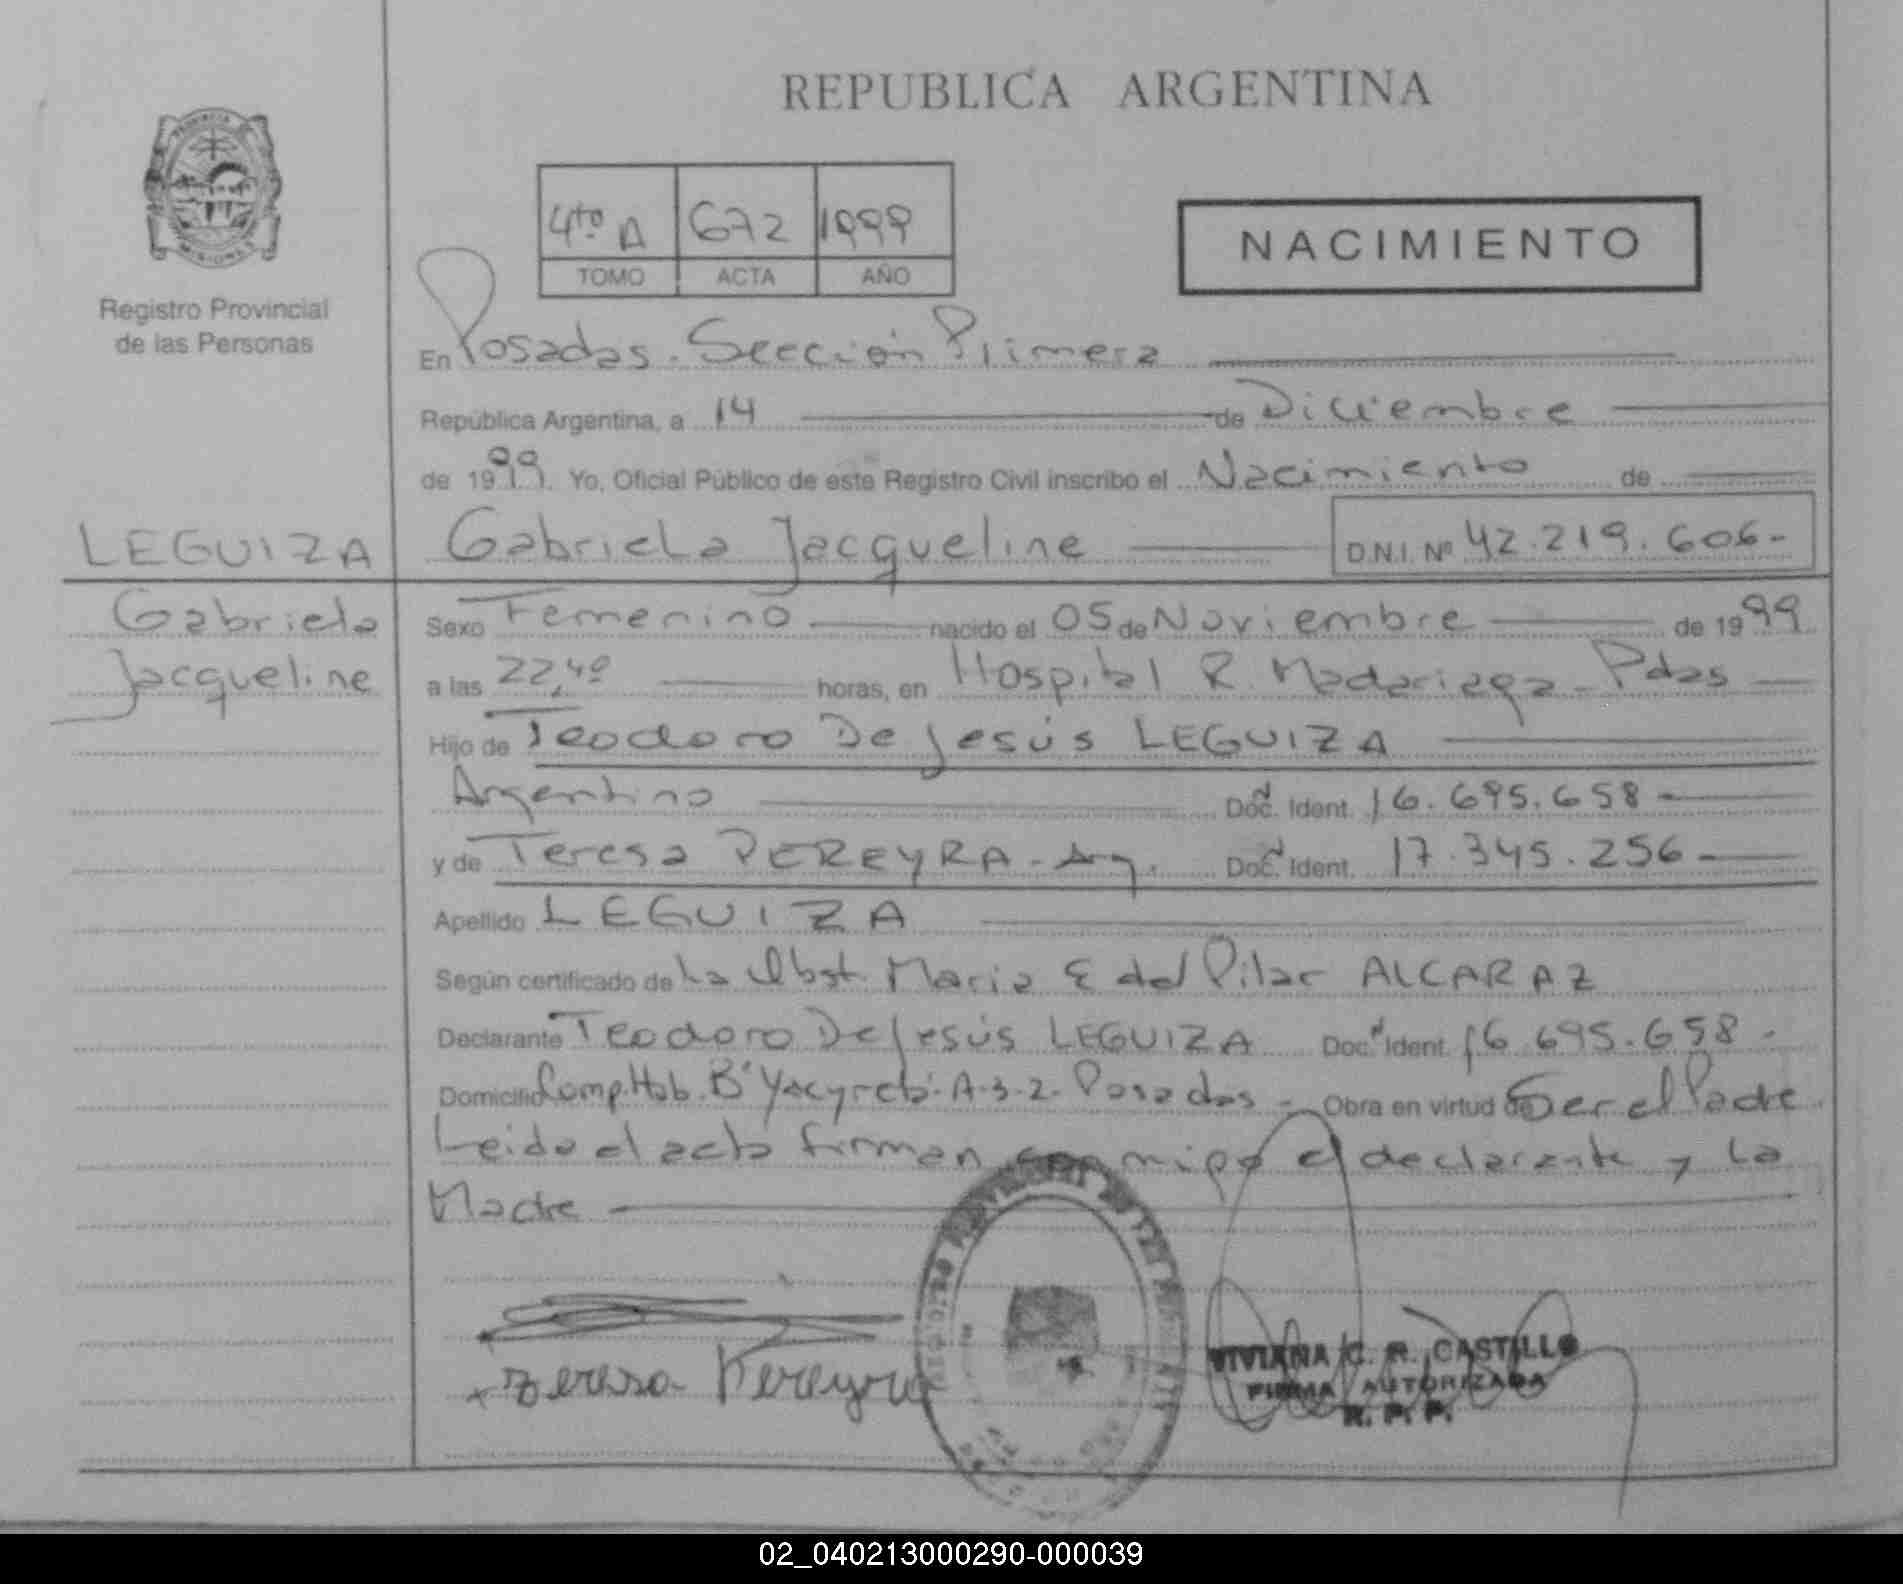 REPUBLICA ARGENTINA
4to A 672 1999
TOMO ACTA AÑO
NACIMIENTO
Registro Provincial
de las Personas
En Posadas. Sección Primera
República Argentina, a 14 de Diciembre
de 1999. Yo, Oficial Público de este Registro Civil inscribo el Nacimiento de
LEGUIZA
Gabriela Jacqueline D.N.I. Nº 42.219.606-
Gabriela
Jacqueline
Sexo Femenino nacido el 05 de Noviembre de 1999
a las 22,40 horas, en Hospital R. Madariaga - Pdas
Hijo de Teodoro De Jesús LEGUIZA
Argentino Doc. Ident. 16.695.658-
y de Teresa PEREYRA - Arg. Doc. Ident. 17.345.256-
Apellido LEGUIZA
Según certificado de La Obst. Maria E del Pilar ALCARAZ
Declarante Teodoro De Jesús LEGUIZA Doc. Ident. 16.695.658-
Domicilio Comp. Hab. Bº Yacyretá - A-3-2- Posadas - Obra en virtud de Ser el Padre.
Leida el acta firman con migo el declarante y la
Madre
Teresa Pereyra
VIVIANA C. R. CASTILLO
FIRMA AUTORIZADA
R. P. P.
02_040213000290-000039